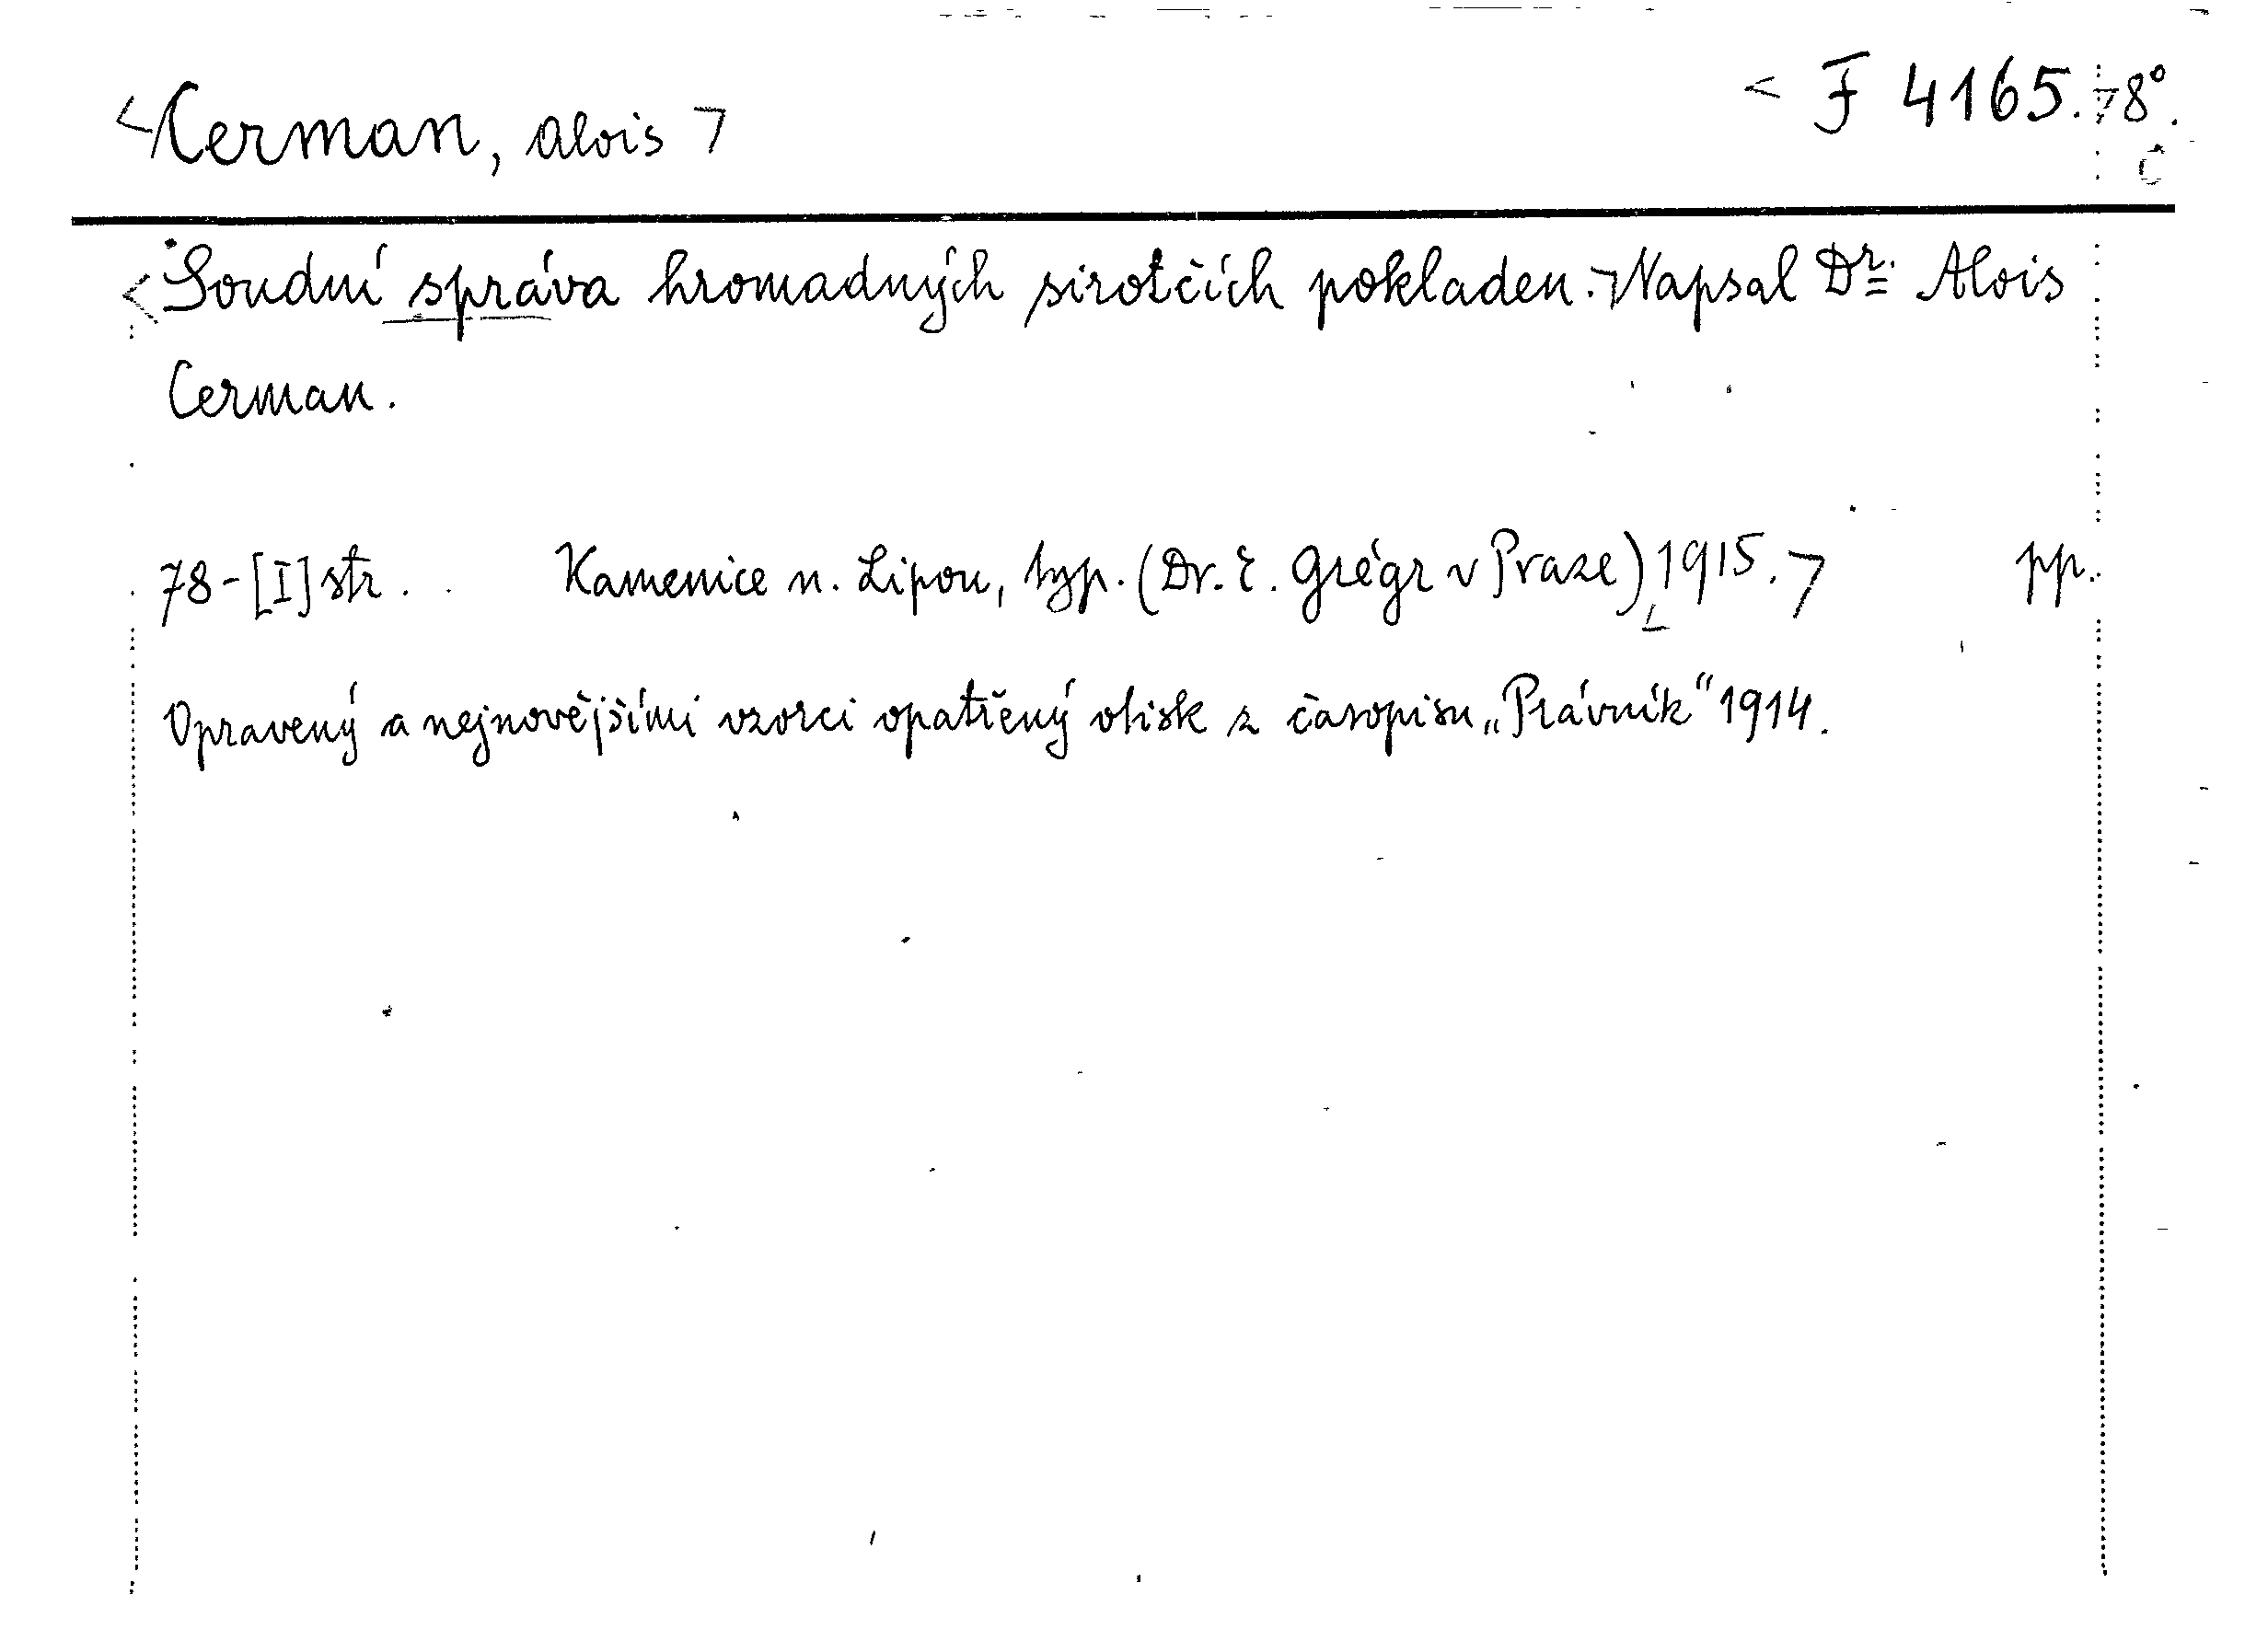 Cerman, Alois
F 4165. 8°.
Č
Soudní správa hromadných sirotčích pokladen. Napsal Dr. Alois
Cerman.
78-[I] str. Kamenice n. Lipou, typ. (Dr. E. Grégr v Praze) 1915. pp.
Opravený a nejnovějšími vzorci opatřený otisk z časopisu „Právník" 1914.